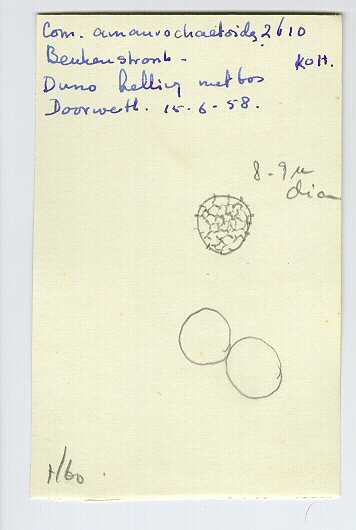 Com. amaurochaetoides 2610
Beukenstronk - KOH.
Duno helling met bos
Doorwerth. 15-6-58.
8-9 μ
diam